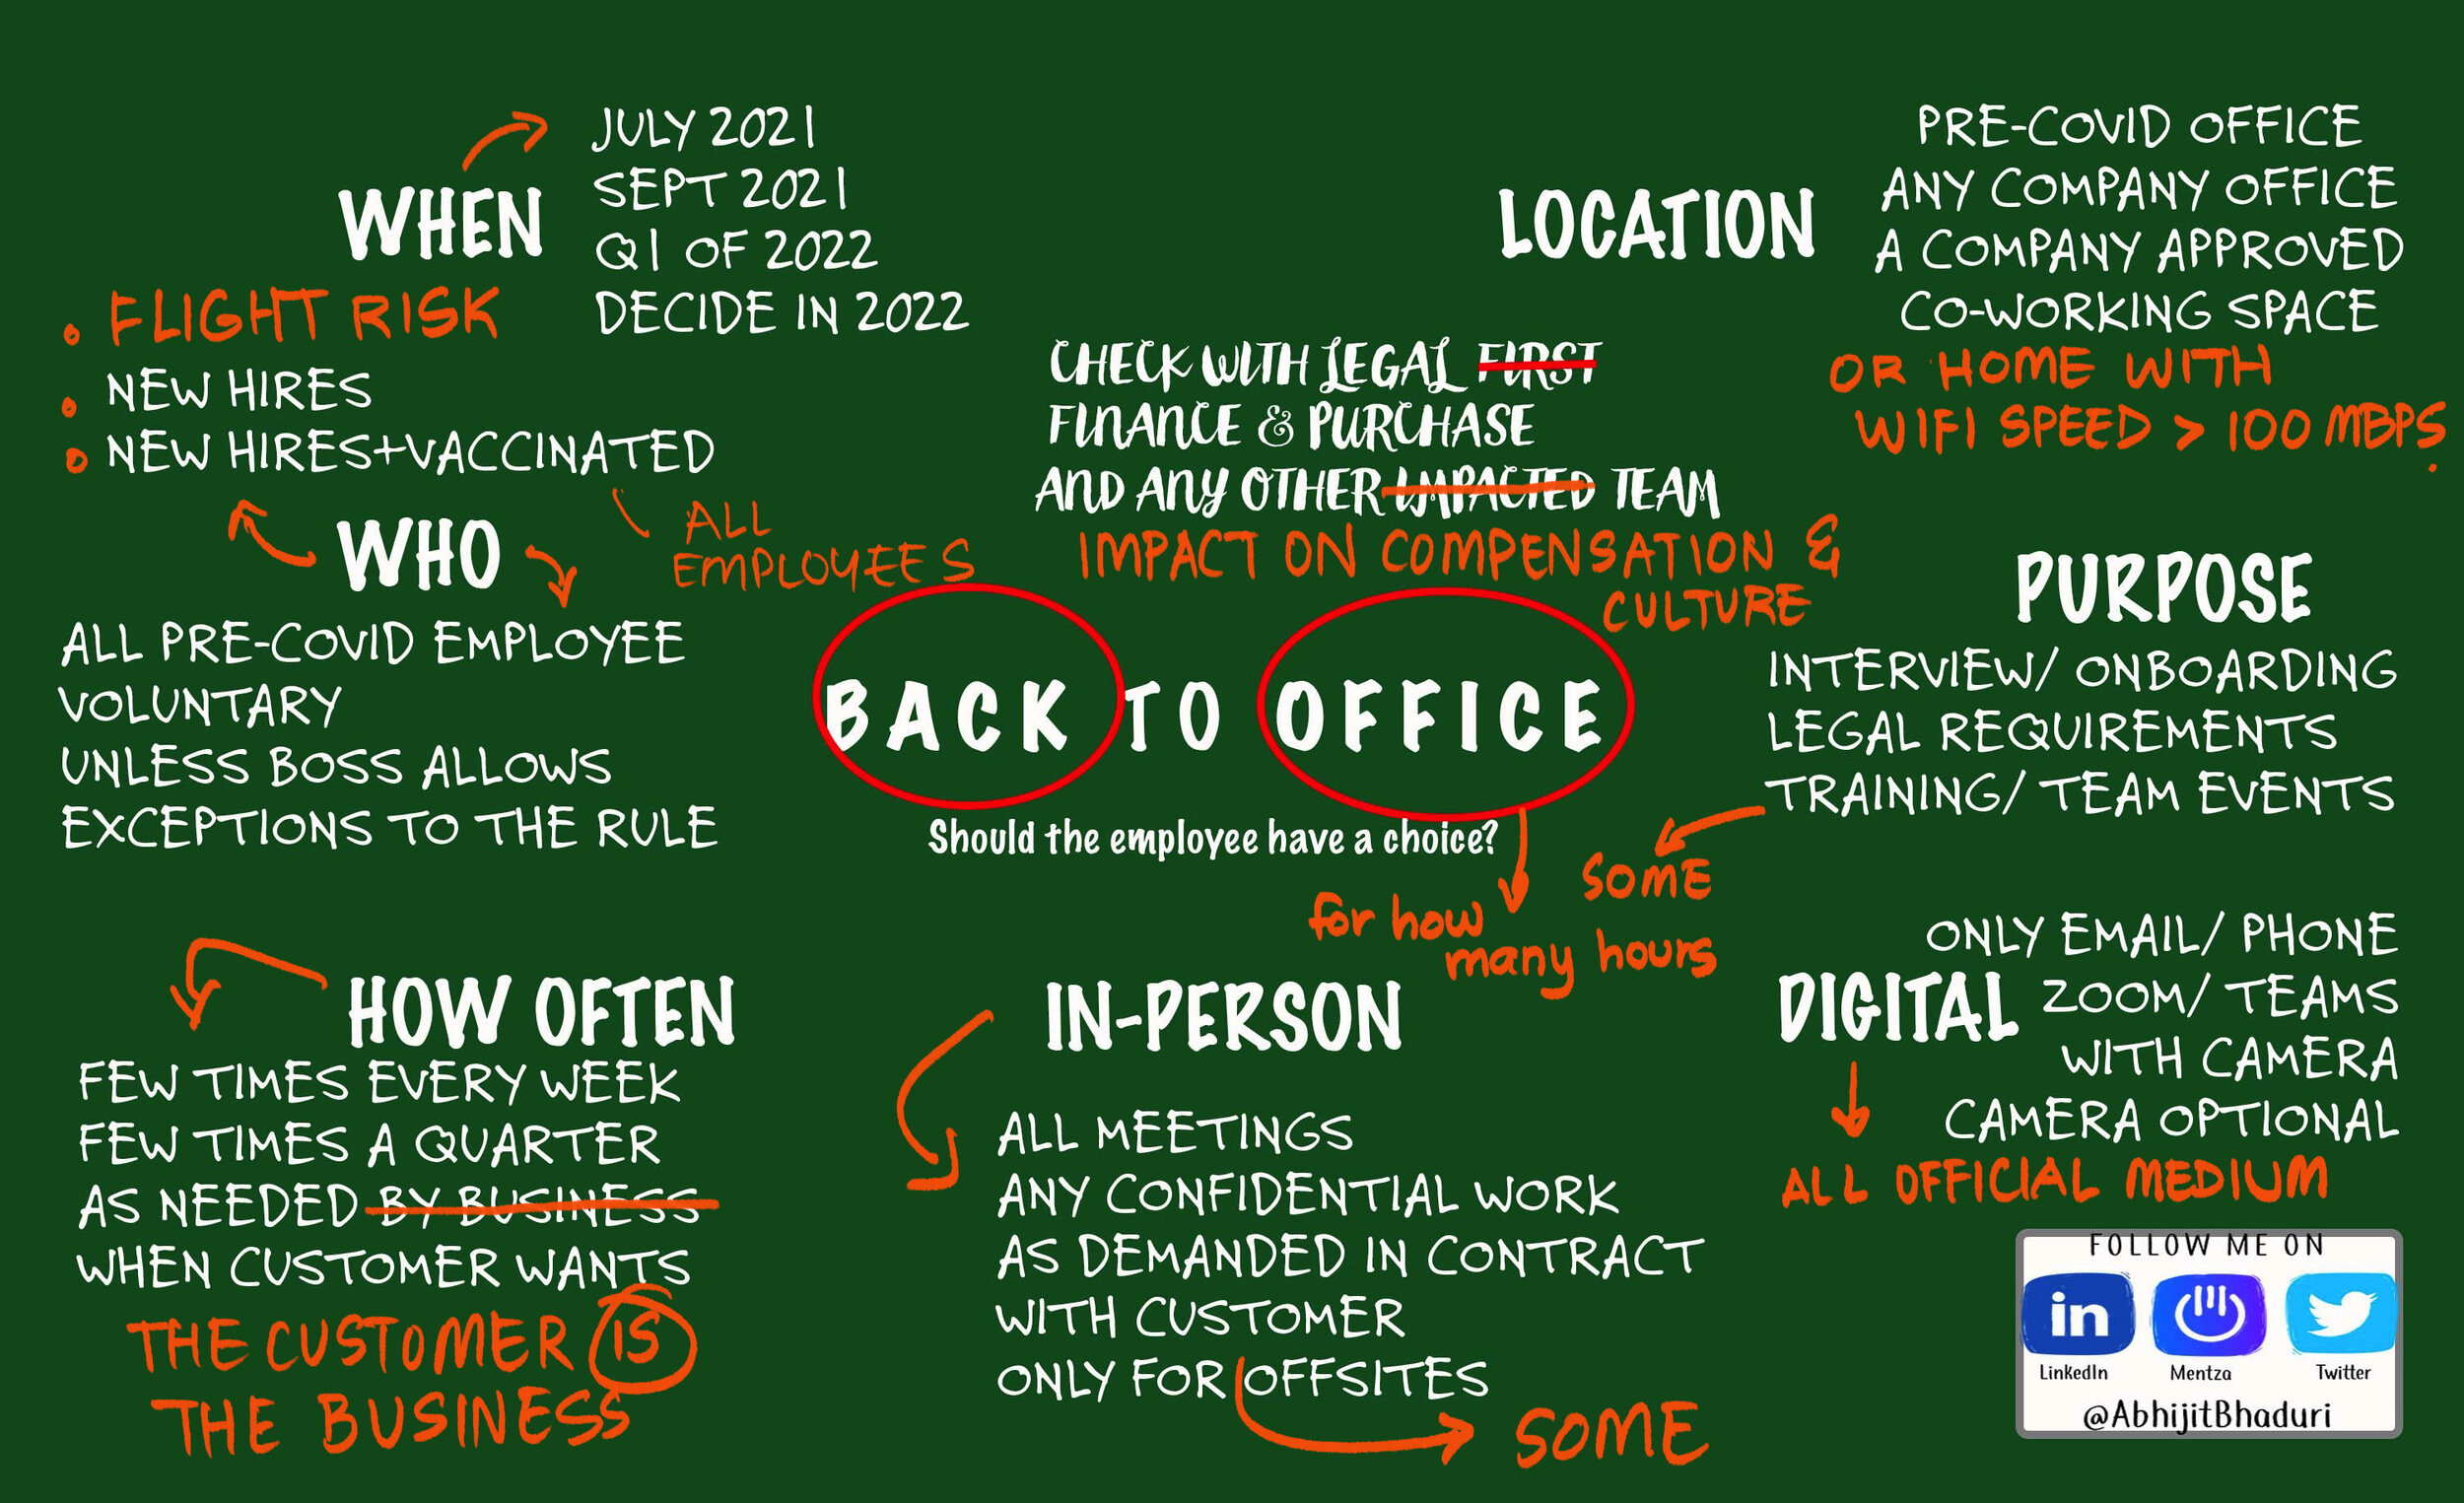 WHEN
JULY 2021
SEPT 2021
Q1 OF 2022
DECIDE IN 2022
FLIGHT RISK
NEW HIRES
NEW HIRES+VACCINATED
ALL
EMPLOYEES
WHO
ALL PRE-COVID EMPLOYEE
VOLUNTARY
UNLESS BOSS ALLOWS
EXCEPTIONS TO THE RULE
LOCATION
PRE-COVID OFFICE
ANY COMPANY OFFICE
A COMPANY APPROVED
CO-WORKING SPACE
OR HOME WITH
WIFI SPEED > 100 MBPS.
CHECK WITH LEGAL FIRST
FINANCE & PURCHASE
AND ANY OTHER IMPACTED TEAM
IMPACT ON COMPENSATION &
CULTURE
BACK TO OFFICE
Should the employee have a choice?
for how
many hours
PURPOSE
INTERVIEW/ ONBOARDING
LEGAL REQUIREMENTS
TRAINING/ TEAM EVENTS
SOME
HOW OFTEN
FEW TIMES EVERY WEEK
FEW TIMES A QUARTER
AS NEEDED BY BUSINESS
WHEN CUSTOMER WANTS
THE CUSTOMER IS
THE BUSINESS
IN-PERSON
ALL MEETINGS
ANY CONFIDENTIAL WORK
AS DEMANDED IN CONTRACT
WITH CUSTOMER
ONLY FOR OFFSITES
SOME
DIGITAL
ONLY EMAIL/ PHONE
ZOOM/ TEAMS
WITH CAMERA
CAMERA OPTIONAL
ALL OFFICIAL MEDIUM
FOLLOW ME ON
in
LinkedIn Mentza Twitter
@AbhijitBhaduri